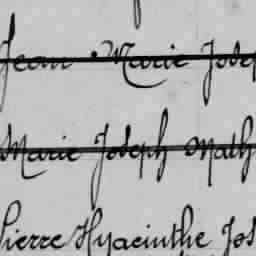 Jean Marie Josep
Marie Joseph Math
Pierre Hyacinthe Jos